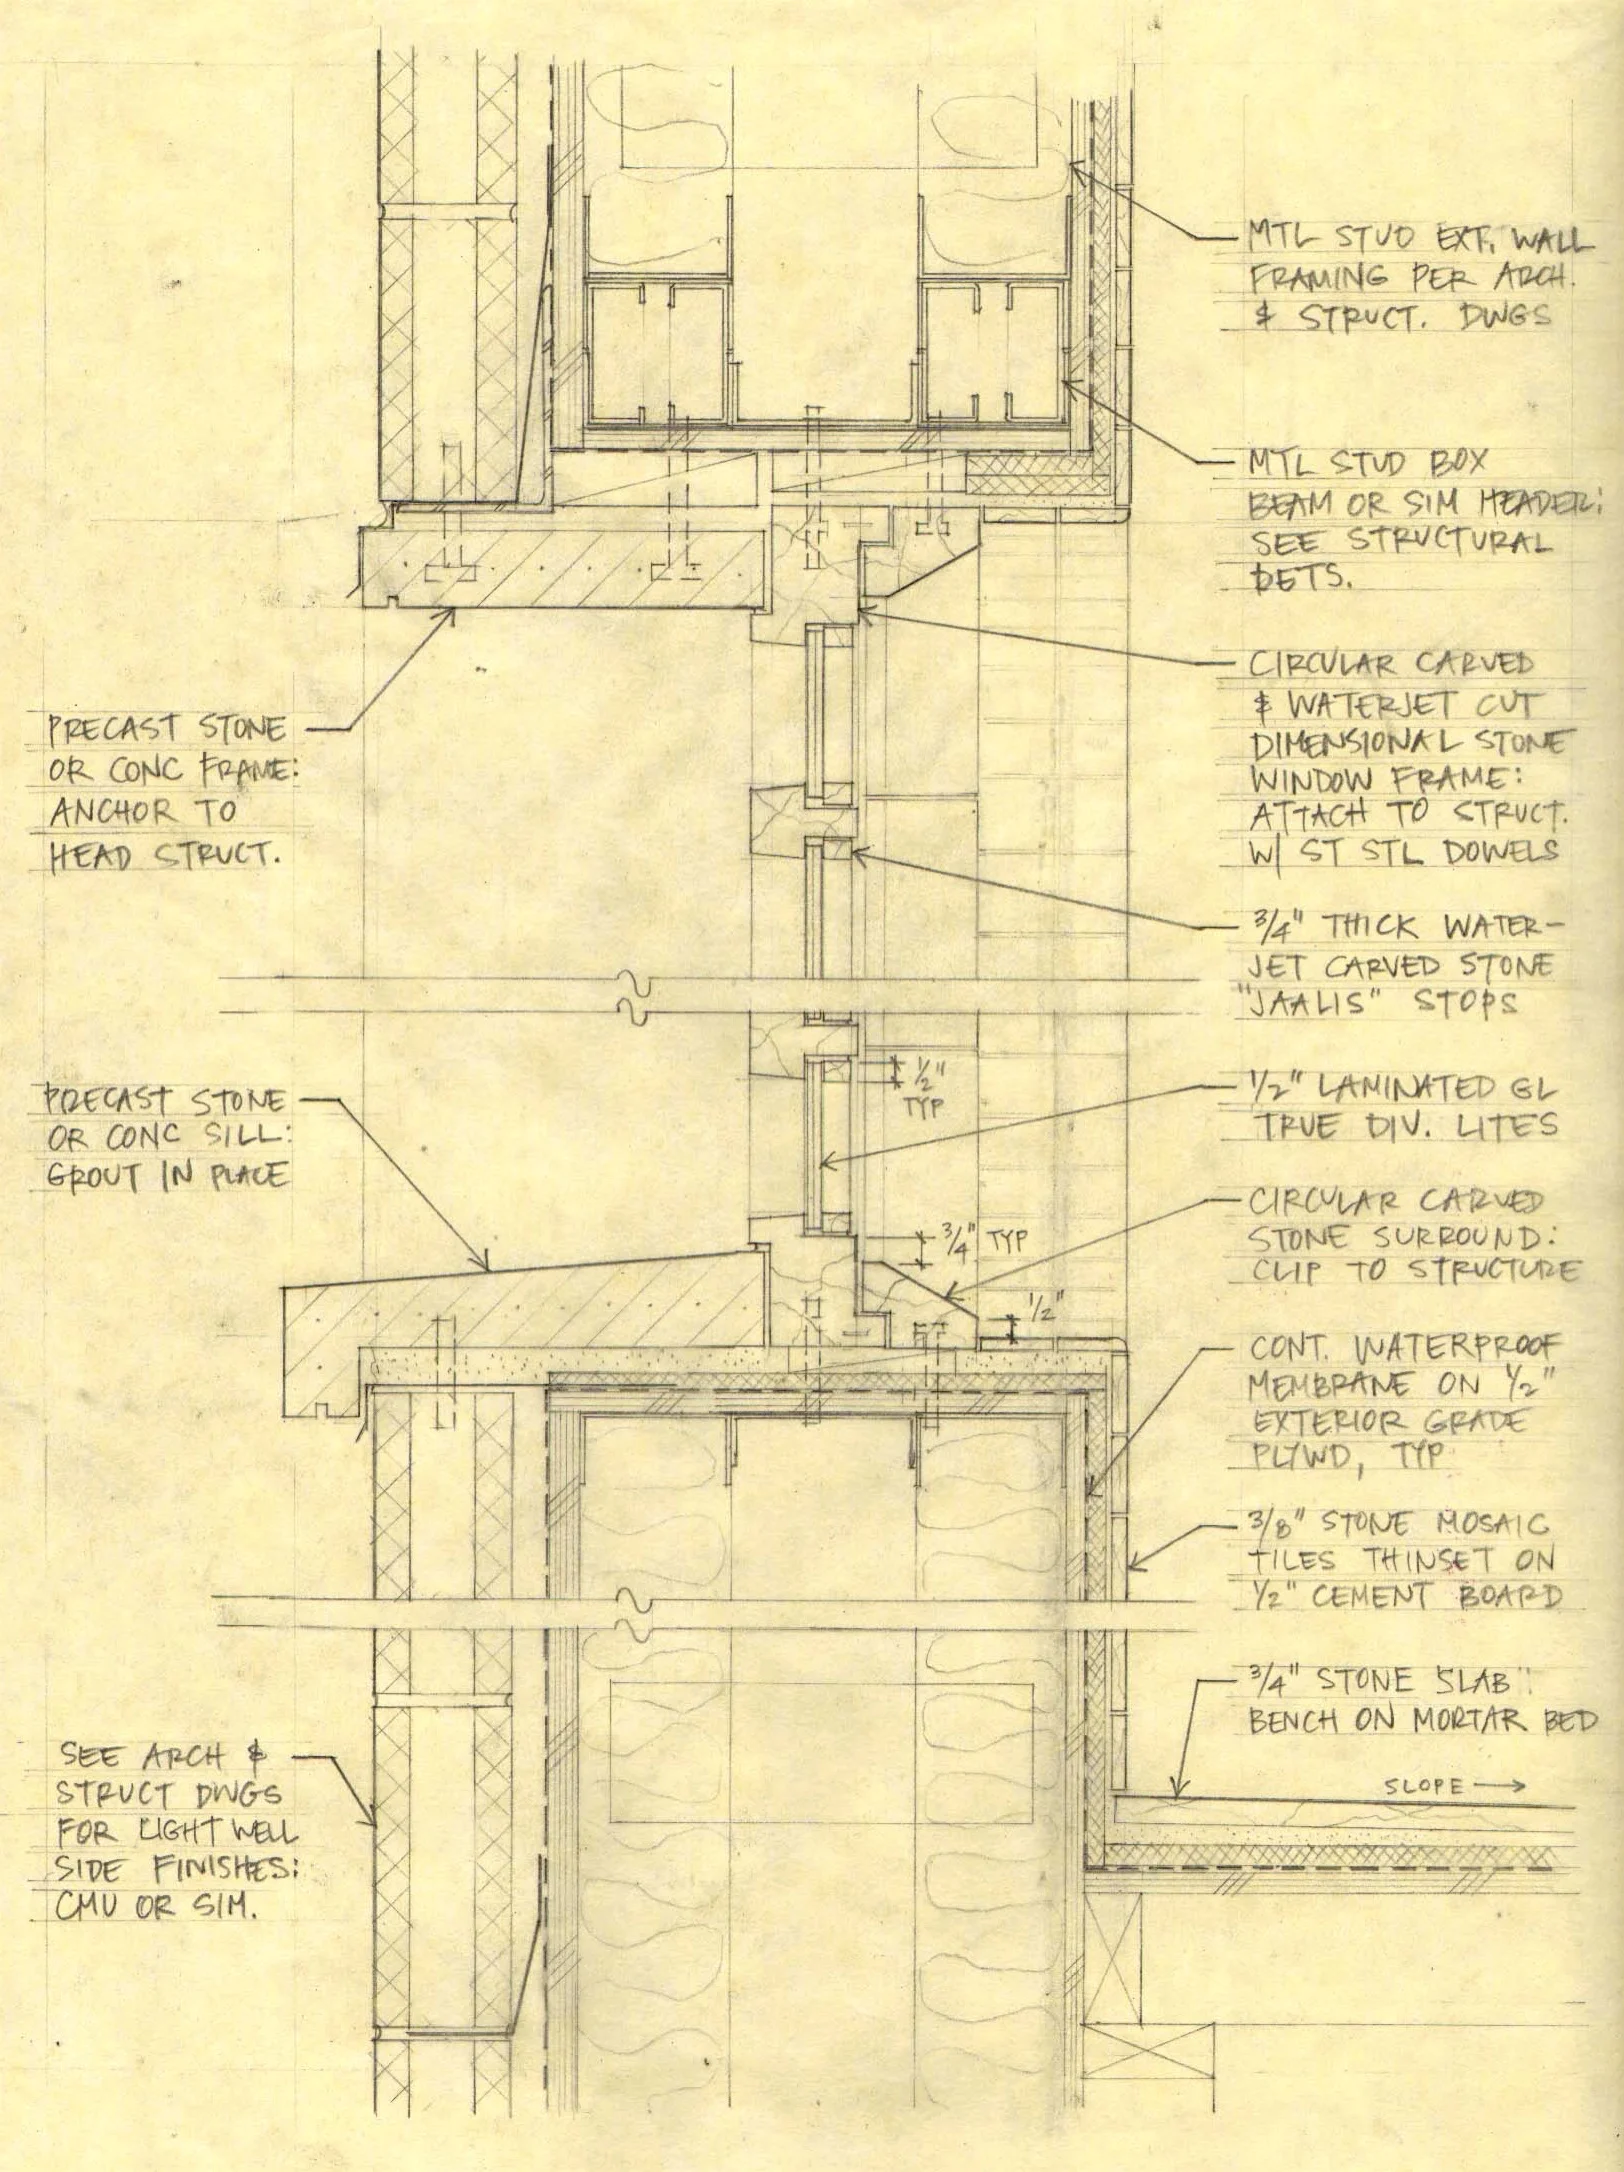 MTL STUD EXT. WALL
FRAMING PER ARCH.
& STRUCT. DWGS
MTL STUD BOX
BEAM OR SIM HEADER:
SEE STRUCTURAL
DETS.
CIRCULAR CARVED
& WATERJET CUT
DIMENSIONAL STONE
WINDOW FRAME:
ATTACH TO STRUCT.
W/ ST STL DOWELS
PRECAST STONE
OR CONC FRAME:
ANCHOR TO
HEAD STRUCT.
3/4" THICK WATER-
JET CARVED STONE
"JAALIS" STOPS
1/2"
TYP
1/2" LAMINATED GL
TRUE DIV. LITES
PRECAST STONE
OR CONC SILL:
GROUT IN PLACE
3/4" TYP
CIRCULAR CARVED
STONE SURROUND:
CLIP TO STRUCTURE
1/2"
CONT. WATERPROOF
MEMBRANE ON 1/2"
EXTERIOR GRADE
PLYWD, TYP
3/8" STONE MOSAIC
TILES THINSET ON
1/2" CEMENT BOARD
3/4" STONE SLAB
BENCH ON MORTAR BED
SLOPE
SEE ARCH &
STRUCT DWGS
FOR LIGHT WELL
SIDE FINISHES:
CMU OR SIM.